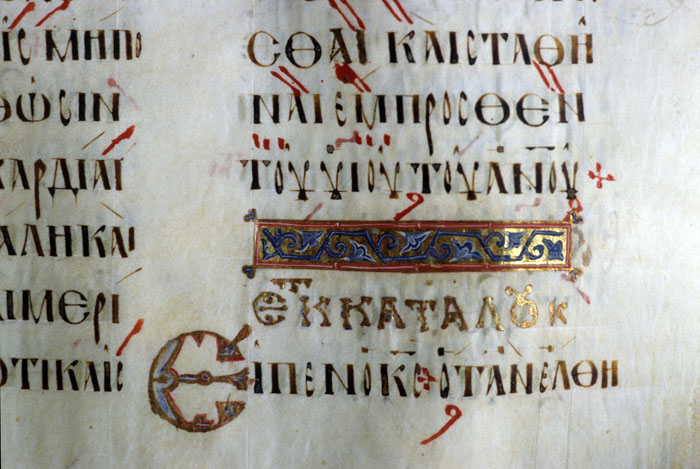 ΙϹ ΜΗΠΟ
ΘΩϹΙΝ
ΚΑΡΔΙΑΙ
ΑΛΗ ΚΑΙ
ΑΙ ΜΕΡΙ
ΩΤΙΚΑΙϹ
ϹΘΑΙ ΚΑΙ ϹΤΑΘΗ
ΝΑΙ ΕΜΠΡΟϹΘΕΝ
ΤΟΥ ΥΙΟΥ ΤΟΥ ΑΝΟΥ
ΕΚ ΚΑΤΑ ΛȢΚ
ΕΙΠΕΝ Ο ΚϹ ΟΤΑΝ ΕΛΘΗ